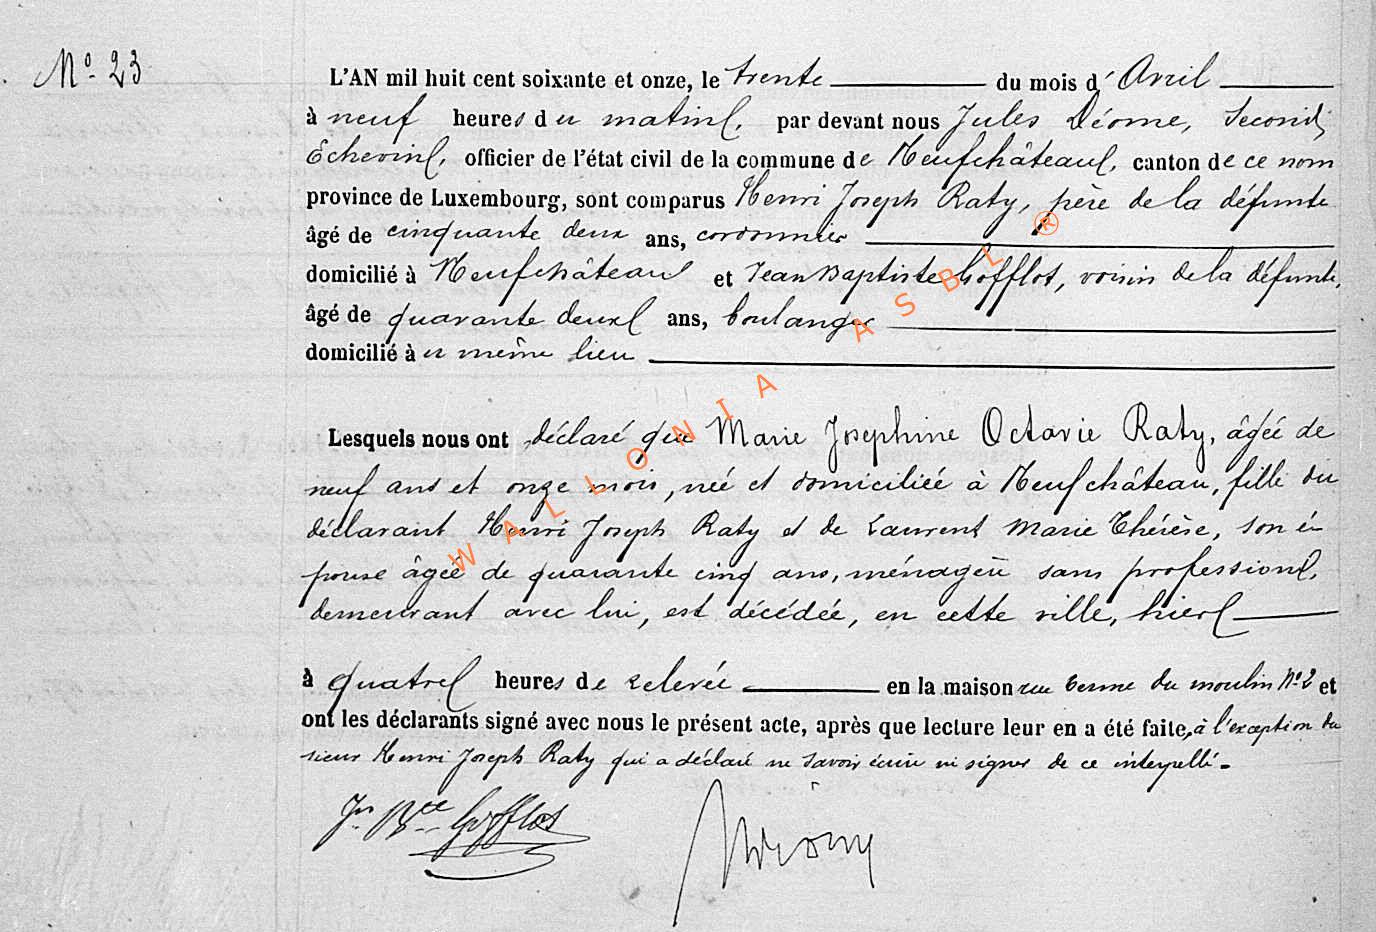 Nº 23
L'AN mil huit cent soixante et onze, le trente du mois d'Avril
à neuf heures du matin, par devant nous Jules Déome, Second
Echevin, officier de l'état civil de la commune de Neufchâteau, canton de ce nom
province de Luxembourg, sont comparus Henri Joseph Raty, père de la défunte
âgé de cinquante deux ans, cordonnier
domicilié à Neufchâteau et Jean Baptiste Gofflot, voisin de la défunte,
âgé de quarante deux ans, boulanger
domicilié au même lieu
Lesquels nous ont déclaré que Marie Josephine Octavie Raty, âgée de
neuf ans et onze mois, née et domiciliée à Neufchâteau, fille du
déclarant Henri Joseph Raty et de Laurent Marie Thérèse, son é-
pouse âgée de quarante cinq ans, ménagère sans profession,
demeurant avec lui, est décédée, en cette ville, hier
à quatre heures de relevée en la maison rue terme du moulin Nº 2 et
ont les déclarants signé avec nous le présent acte, après que lecture leur en a été faite, à l'exception du
sieur Henri Joseph Raty qui a déclaré ne savoir écrire ni signer de ce interpellé.
Jn Bte Gofflot
WALLONIA ASBL ®